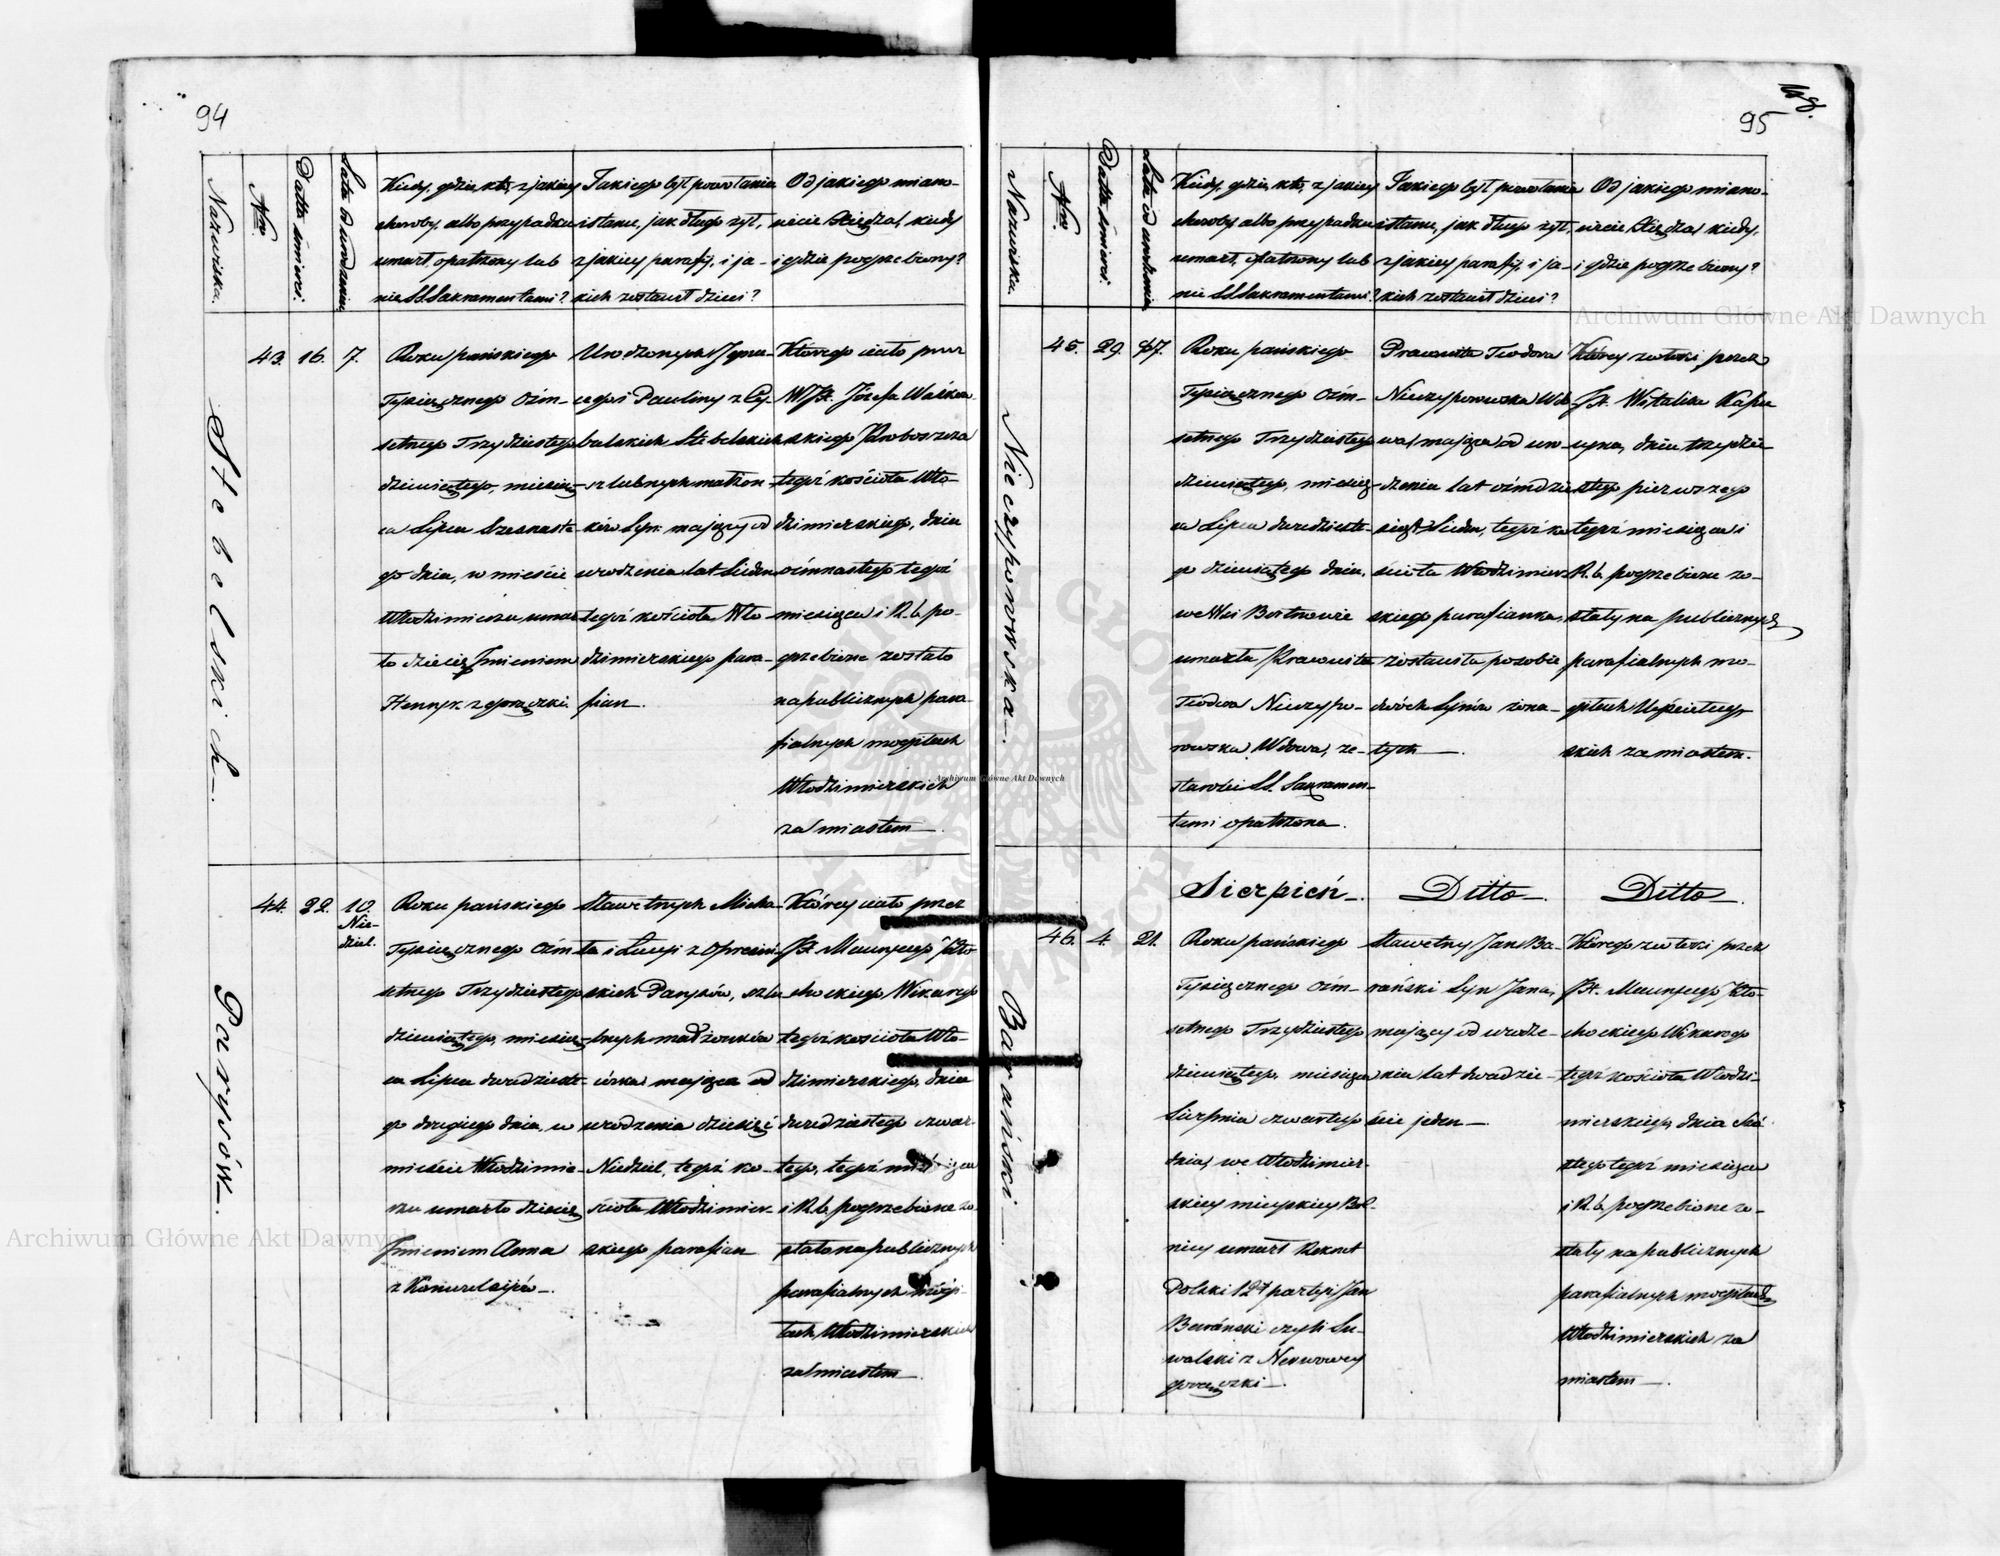 94
Nazwiska.
Nro
Datta śmierci.
Lata od urodzenia
Kiedy, gdzie, kto, z jakiey
choroby, albo przypadku
umarł, opatrzony lub
nie SS. Sakramentami?
Jakiego był powołania
i stanu, jak długo żył,
z jakiey parafij, i ja-
kich zostawił dzieci?
Od jakiego miano-
wicie Xiędza, kiedy
i gdzie pogrzebiony?
Stebelskich.
43.
16.
7.
Roku pańskiego
Tysiącznego Ośm-
setnego Trzydziestego
dziewiątego, miesią-
ca Lipca Szesnaste-
go dnia, w mieście
Włodzimierzu umar-
ło dziecię Imieniem
Henryk z gorączki.
Urodzonych Igna-
cego i Pauliny z Cy-
balskich Stebelskich
szlubnych małżon-
ków Syn. mający od
urodzenia lat Siedm
tegoż kościoła Wło-
dzimierskiego para-
fian.
Którego ciało przez
WJX. Józefa
skiego Proboszcza
tegoż kościoła Wło-
dzimierskiego, dnia
ośmnastego tegoż
miesiąca i R. b. po-
grzebione zostało
na publicznych para-
fialnych mogiłach
Włodzimierskich
za miastem.
Parysów.
44.
22.
10.
Nie-
dziel.
Roku pańskiego
Tysiącznego Ośm-
setnego Trzydziestego
dziewiątego, miesią-
ca Lipca dwudzieste-
go drugiego dnia, w
mieście Włodzimie-
rzu umarło dziecię
Imieniem Anna
z Konwulsijów.
Sławetnych Micha-
ła i Łucyi z
skich Parysów, szlu-
bnych małżonków
córka mająca od
urodzenia dziesięć
Niedziel, tegoż ko-
ścioła Włodzimier-
skiego parafian
Którey ciało przez
JX. Maurycego Kło-
chockiego Wikarego
tegoż kościoła Wło-
dzimierskiego, dnia
dwudziestego czwar-
tego, tegoż miesiąca
i R. b. pogrzebione zo-
stało na publicznych
parafialnych mogi-
łach Włodzimierskich
za miastem.
95
Nazwiska.
Nro
Datta śmierci.
Lata od urodzenia
Kiedy, gdzie, kto, z jakiey
choroby, albo przypadku
umarł, opatrzony lub
nie SS. Sakramentami?
Jakiego był powołania
i stanu, jak długo żył,
z jakiey parafij, i ja-
kich zostawił dzieci?
Od jakiego miano-
wicie Xiędza, kiedy,
i gdzie pogrzebiony?
Nieczyporowska.
45.
29.
87.
Roku pańskiego
Tysiącznego Ośm-
setnego Trzydziestego
dziewiątego, miesią-
ca Lipca dwudzieste-
go dziewiątego dnia,
we Wsi
umarła Pracowita
Teodora Nieczypo-
rowska, Wdowa, ze
starości SS. Sakramen-
tami opatrzona.
Pracowita Teodora
Nieczyporowska Wdo-
wa, mająca od uro-
dzenia lat ośmdzie-
siąt Siedm, tegoż ko-
ścioła Włodzimier-
skiego parafianka,
zostawiła po sobie
dwóch Synów żona-
tych.
Którey zwłoki przez
JX. Witalisa Kapu-
cyna, dnia trzydzie-
stego pierwszego
tegoż miesiąca i
R. b. pogrzebione zo-
stały na publicznych
parafialnych mo-
giłach
skich za miastem.
Sierpień.
Ditto.
Ditto.
Barański.
46.
4.
21.
Roku pańskiego
Tysiącznego Ośm-
setnego Trzydziestego
dziewiątego, miesiąca
Sierpnia czwartego
dnia, we Włodzimier-
skiey mieyskiey Bol-
nicy umarł Rekrut
Polski 127 partyi Jan
Barański czyli Su-
walski z Nerwowey
gorączki.
Sławetny Jan Ba-
rański Syn Jana,
mający od urodze-
nia lat dwadzie-
ście jeden.
Którego zwłoki przez
JX. Maurycego Kło-
chockiego Wikarego
tegoż kościoła Włodzi-
mierskiego, dnia Szó-
stego tegoż miesiąca
i R. b. pogrzebione zo-
stały na publicznych
parafialnych mogiłach
Włodzimierskich za
miastem.
Archiwum Główne Akt Dawnych
Archiwum Główne Akt Dawnych
Archiwum Główne Akt Dawnych